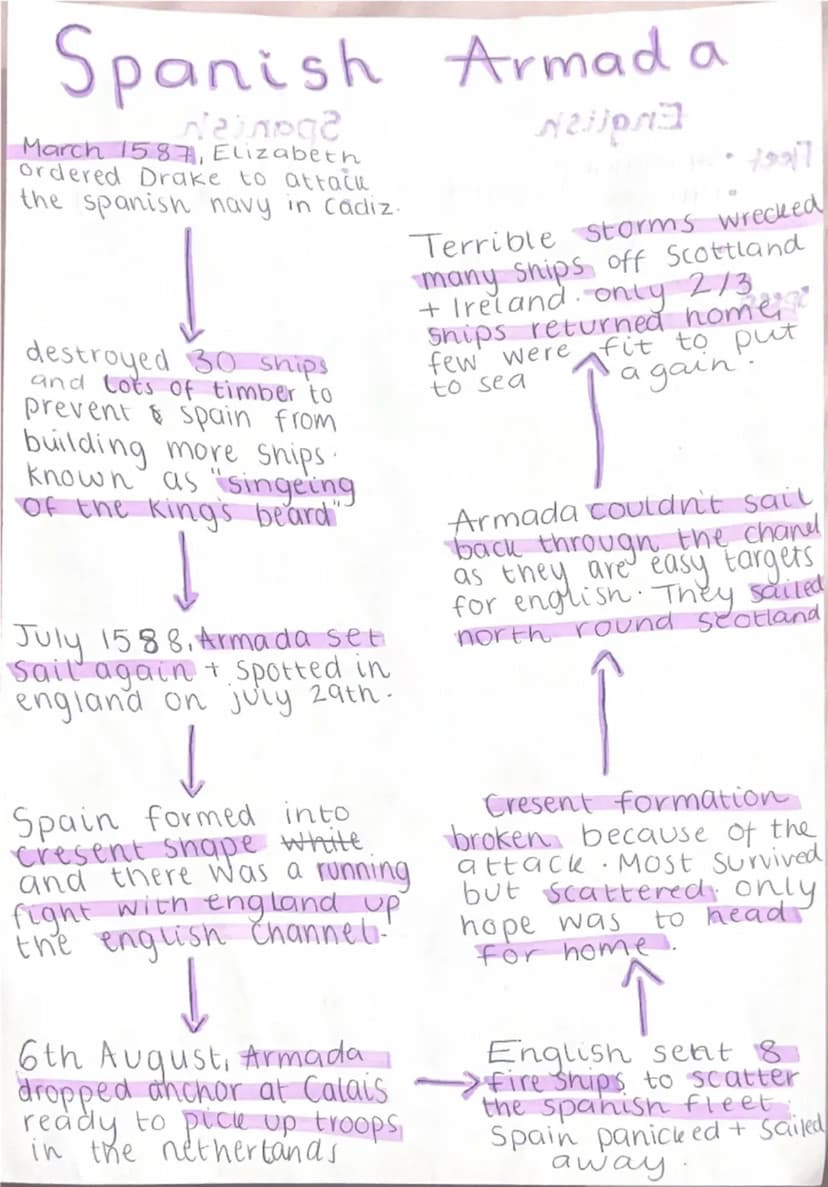 Spanish Armada
March 1587, Elizabeth
ordered Drake to attack
the spanish navy in cadiz.
destroyed 30 ships
and lots of timber to
prevent & spain from
building more ships.
known as "singeing
of the king's beard"
July 1588, Armada set
sail again + spotted in
england on july 29th.
Spain formed into
cresent shape white
and there was a running
fight with england up
the english channel.
6th August, Armada
dropped anchor at Calais
ready to pick up troops
in the netherlands
English sent 8
fire ships to scatter
the spanish fleet.
Spain panicked + sailed
away.
Cresent formation
broken because of the
attack. Most survived
but scattered. only
hope was to head
for home.
Armada couldn't sail
back through the chanel
as they are easy targets
for english. They sailed
north round scotland
Terrible storms wrecked
many ships off Scottland
+ Ireland. only 2/3
ships returned home,
few were fit to put
to sea again.
Spanish
English
Fleet